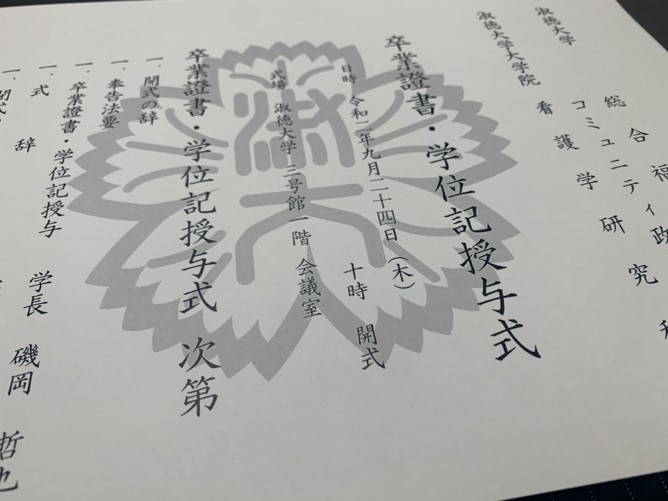 淑徳大学
総合福祉
コミュニティ政策
淑徳大学大学院
看護学研究科
卒業證書・学位記授与式
日時 令和二年九月二十四日(木) 十時 開式
式場 淑徳大学 三号館一階 会議室
卒業證書・学位記授与式 次第
一.開式の辞
一.奉告法要
一.卒業證書・学位記授与
一.式 辞 学長 磯岡 哲也
一.